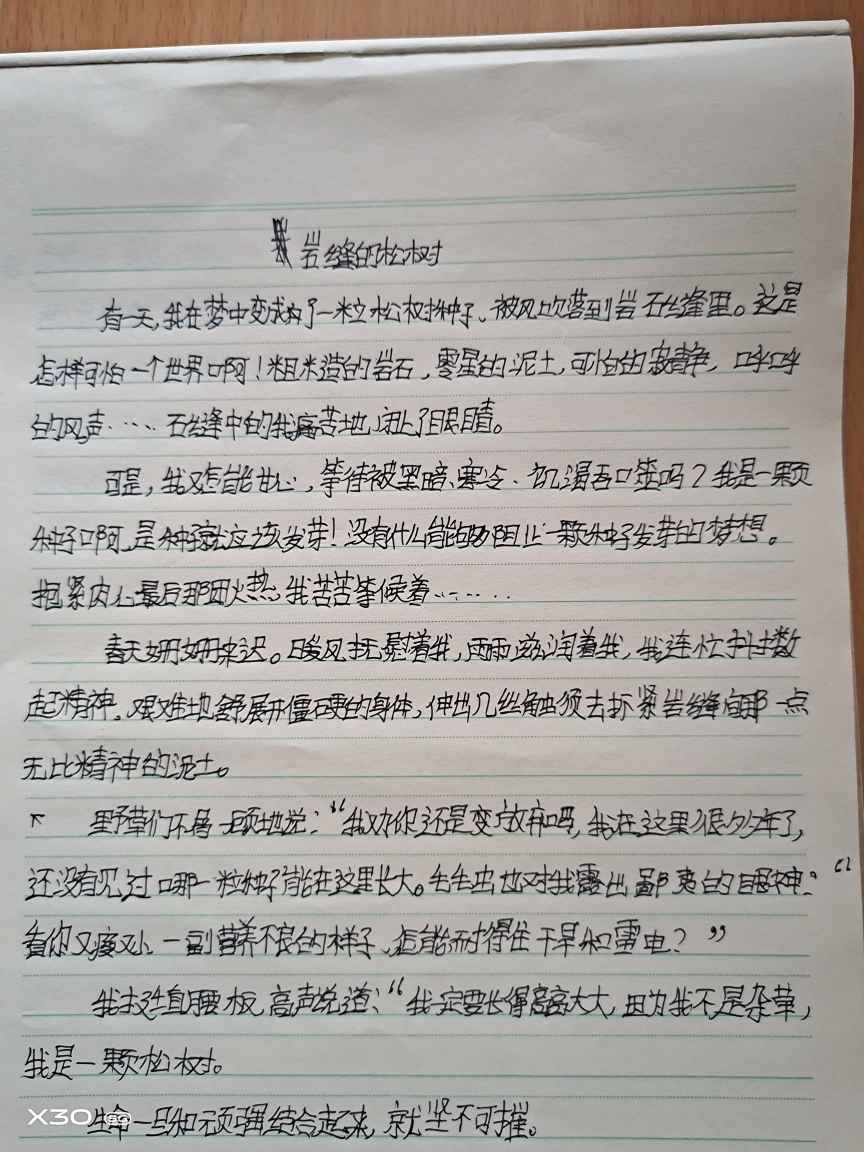 岩缝的松树
有一天,我在梦中变成为了一粒松树种子、被风吹落到岩石缝里。这是
怎样可怕一个世界啊!粗米造的岩石,零星的泥土,可怕的寂静,呼呼
的风声……石缝中的我痛苦地闭上了眼睛。
可是,我又怎能甘心,等待被黑暗、寒冷、饥渴吞噬吗?我是一颗
种子啊,是种子就应该发芽!没有什么能够阻止一颗种子发芽的梦想。
抱紧内心最后那团火热,我苦苦等候着……
春天姗姗来迟。暖风抚慰着我,雨滋润着我,我连忙抖擞
起精神。艰难地舒展开僵硬的身体,伸出几丝触须去抓紧岩缝间那一点
无比精神的泥土。
野草们不屑一顾地说:“我劝你还是放弃吧,我在这里很多年了,
还没有见过哪一粒种子能在这里长大。毛毛虫也对我露出鄙夷的眼神:“
看你又瘦又小,一副营养不良的样子,怎能耐得住干旱和雷电?”
我挺直腰板,高声说道:“我一定要长得高高大大,因为我不是杂草,
我是一颗松树。
生命一旦和顽强结合起来,就坚不可摧。
X30 5G